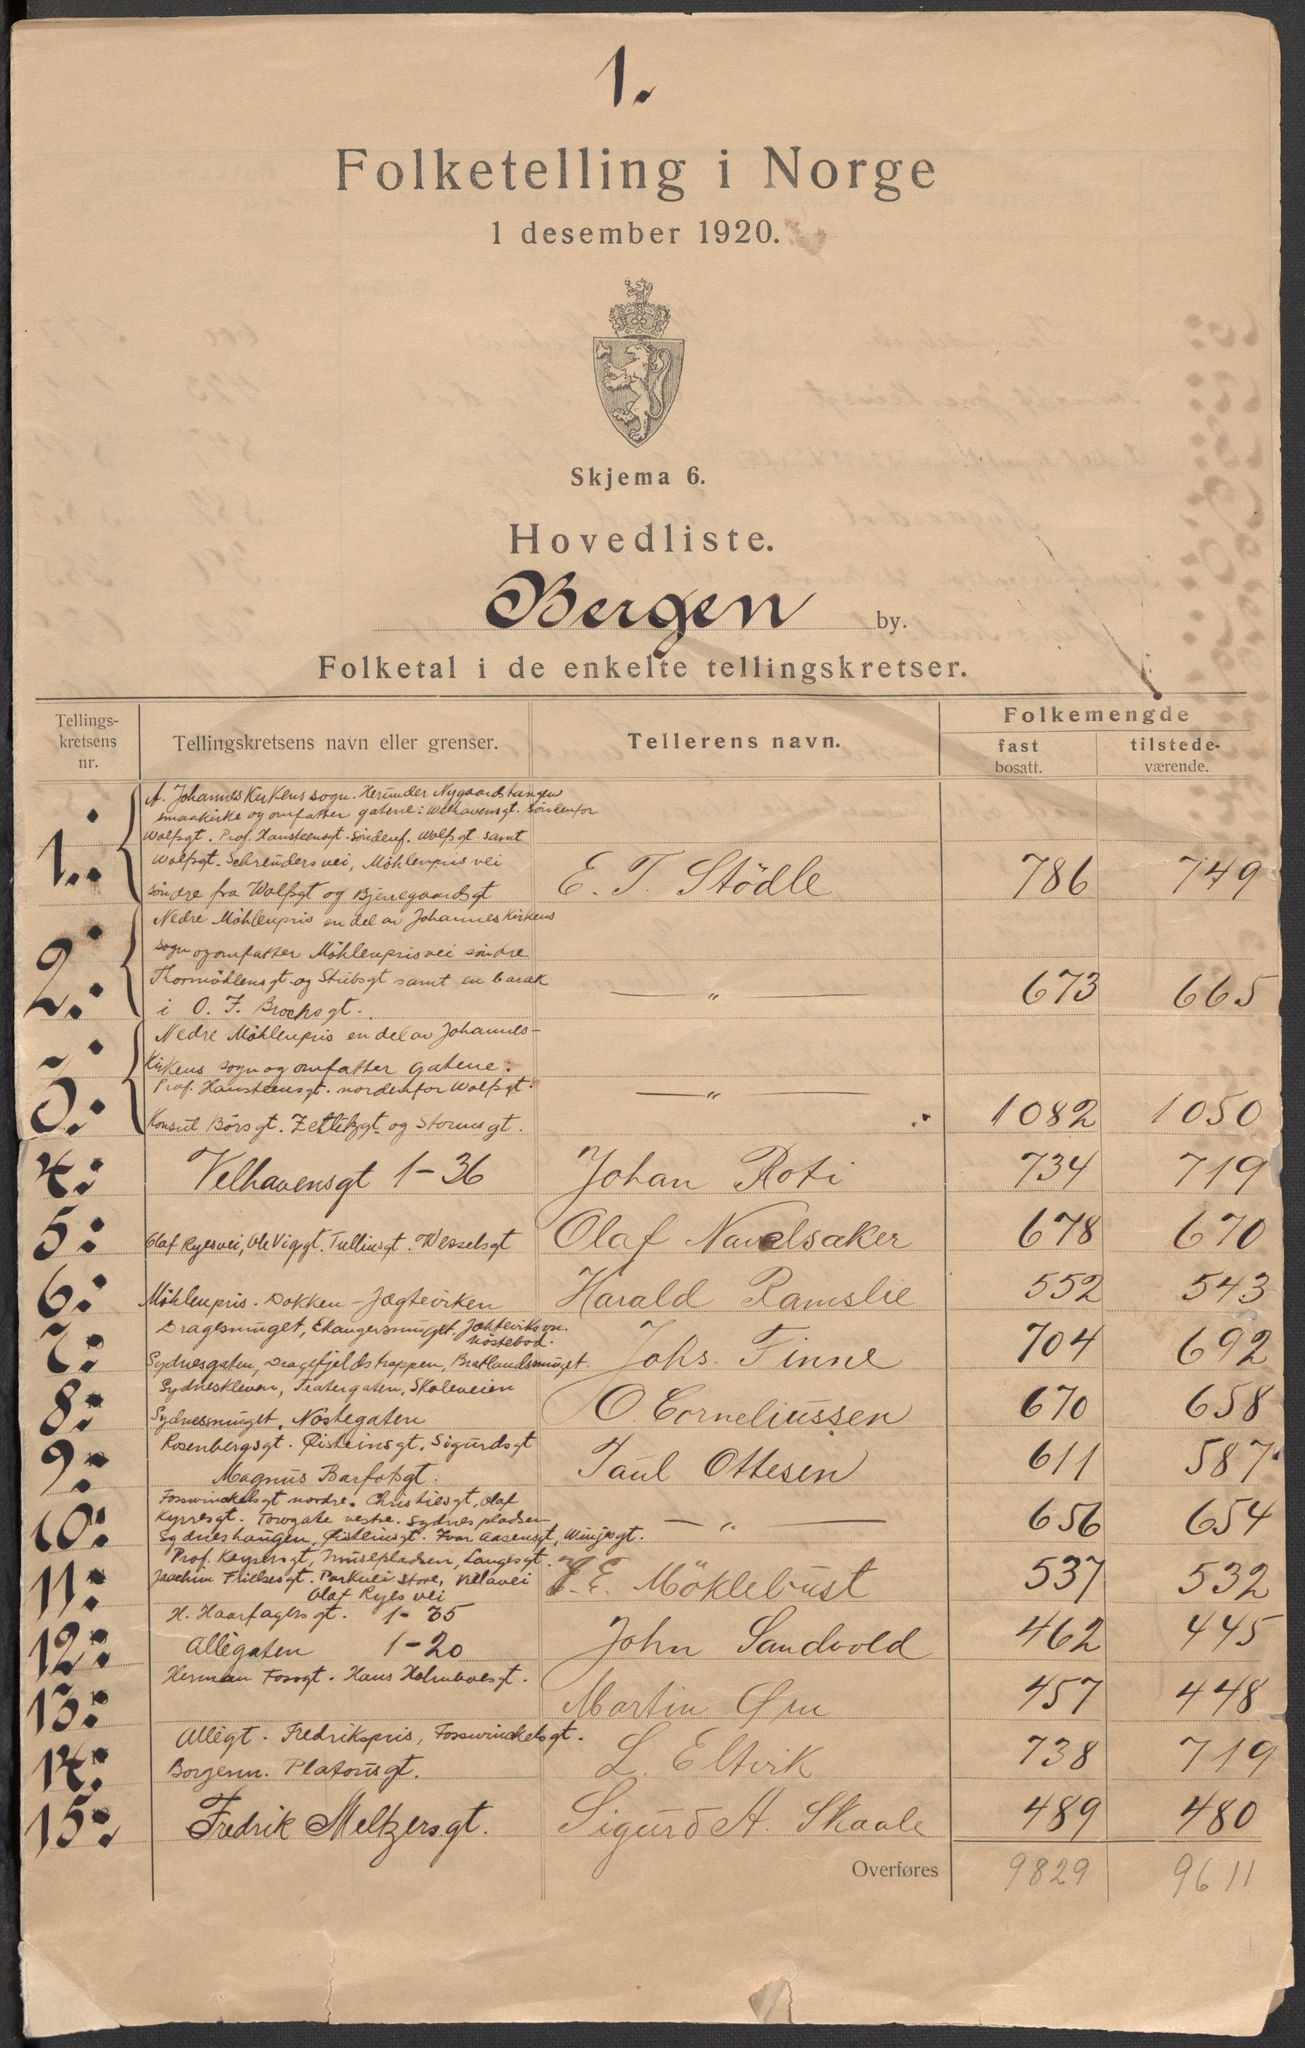 1.
Folketelling i Norge
1 desember 1920.
Skjema 6.
Hovedliste.
Bergen by.
Folketal i de enkelte tellingskretser.
Tellings-kretsens nr. Tellingskretsens navn eller grenser. Tellerens navn. Folkemengde
fast bosatt. tilstede-værende.
A. Johannes Kirkens sogn. Herunder Nygaardstangen
smaakirke og omfatter gatene: Welhavensgt. søndenfor
Wolfsgt. Prof. Hansteensgt. søndenf. Wolfsgt samt
1. Wolfsgt. Schreuders vei, Möhlenpris vei E. T. Stödle 786 749
søndre fra Wolfsgt og Bjerregaardsgt
Nedre Möhlenpris en del av Johannes Kirkens
sogn og omfatter Möhlenprisvei søndre
2. Thormöhlensgt. og Stübsgt samt en barak — „ — 673 665
i O. J. Brochsgt.
Nedre Möhlenpris en del av Johannes-
Kirkens sogn og omfatter gatene:
3. Prof. Hansteensgt. nordenfor Wolfsgt. — „ — 1082 1050
Konsul Börsgt. Zetlitzgt. og Stormsgt.
4: Velhavensgt 1-36 Johan Roti 734 719
5: Olaf Ryesvei, Ole Vigsgt. Tullinsgt. Wesselsgt Olaf Navelsaker 678 670
6: Möhlenpris. Dokken - Jægteviken Harald Ramslie 552 543
Dragesmuget, Ekangersmuget, Jekteviksvn. Nöstebod.
7: Sydnesgaten, Dragefjeldstrappen, Bratlandsmuget. Johs. Finne 704 692
Sydneskleven, Teatergaten, Skoleveien
8: Sydnesmuget, Nöstegaten O Corneliussen 670 658
Rosenbergsgt. Øisteinsgt. Sigurdsgt
9: Magnus Barfotsgt. Paul Ottesen 611 587
Fosswinckelsgt nordre. Christiesgt, Olaf
Kyrresgt. Torvgate vestre. Sydnespladsen
10: Sydneshaugen, Øisteinsgt. Ivar Aasensgt, Winjesgt. — „ — 656 654
Prof. Keysersgt, Musepladsen, Langesgt.
11: Joachim Frielesgt. Parkvei Store, Villavei E. Möklebust 537 532
Olaf Ryes vei
H. Haarfagersgt. 1-35
12: Allégaten 1-20 John Sandvold 462 445
Herman Fossgt. Hans Holmboesgt.
13: Martin Øen 457 448
Allégt. Fredrikspris, Fosswinckelsgt.
14: Borgenn. Platousgt. L. Eltvik 738 719
15: Fredrik Meltzersgt. Sigurd A. Skaale 489 480
Overføres 9829 9611